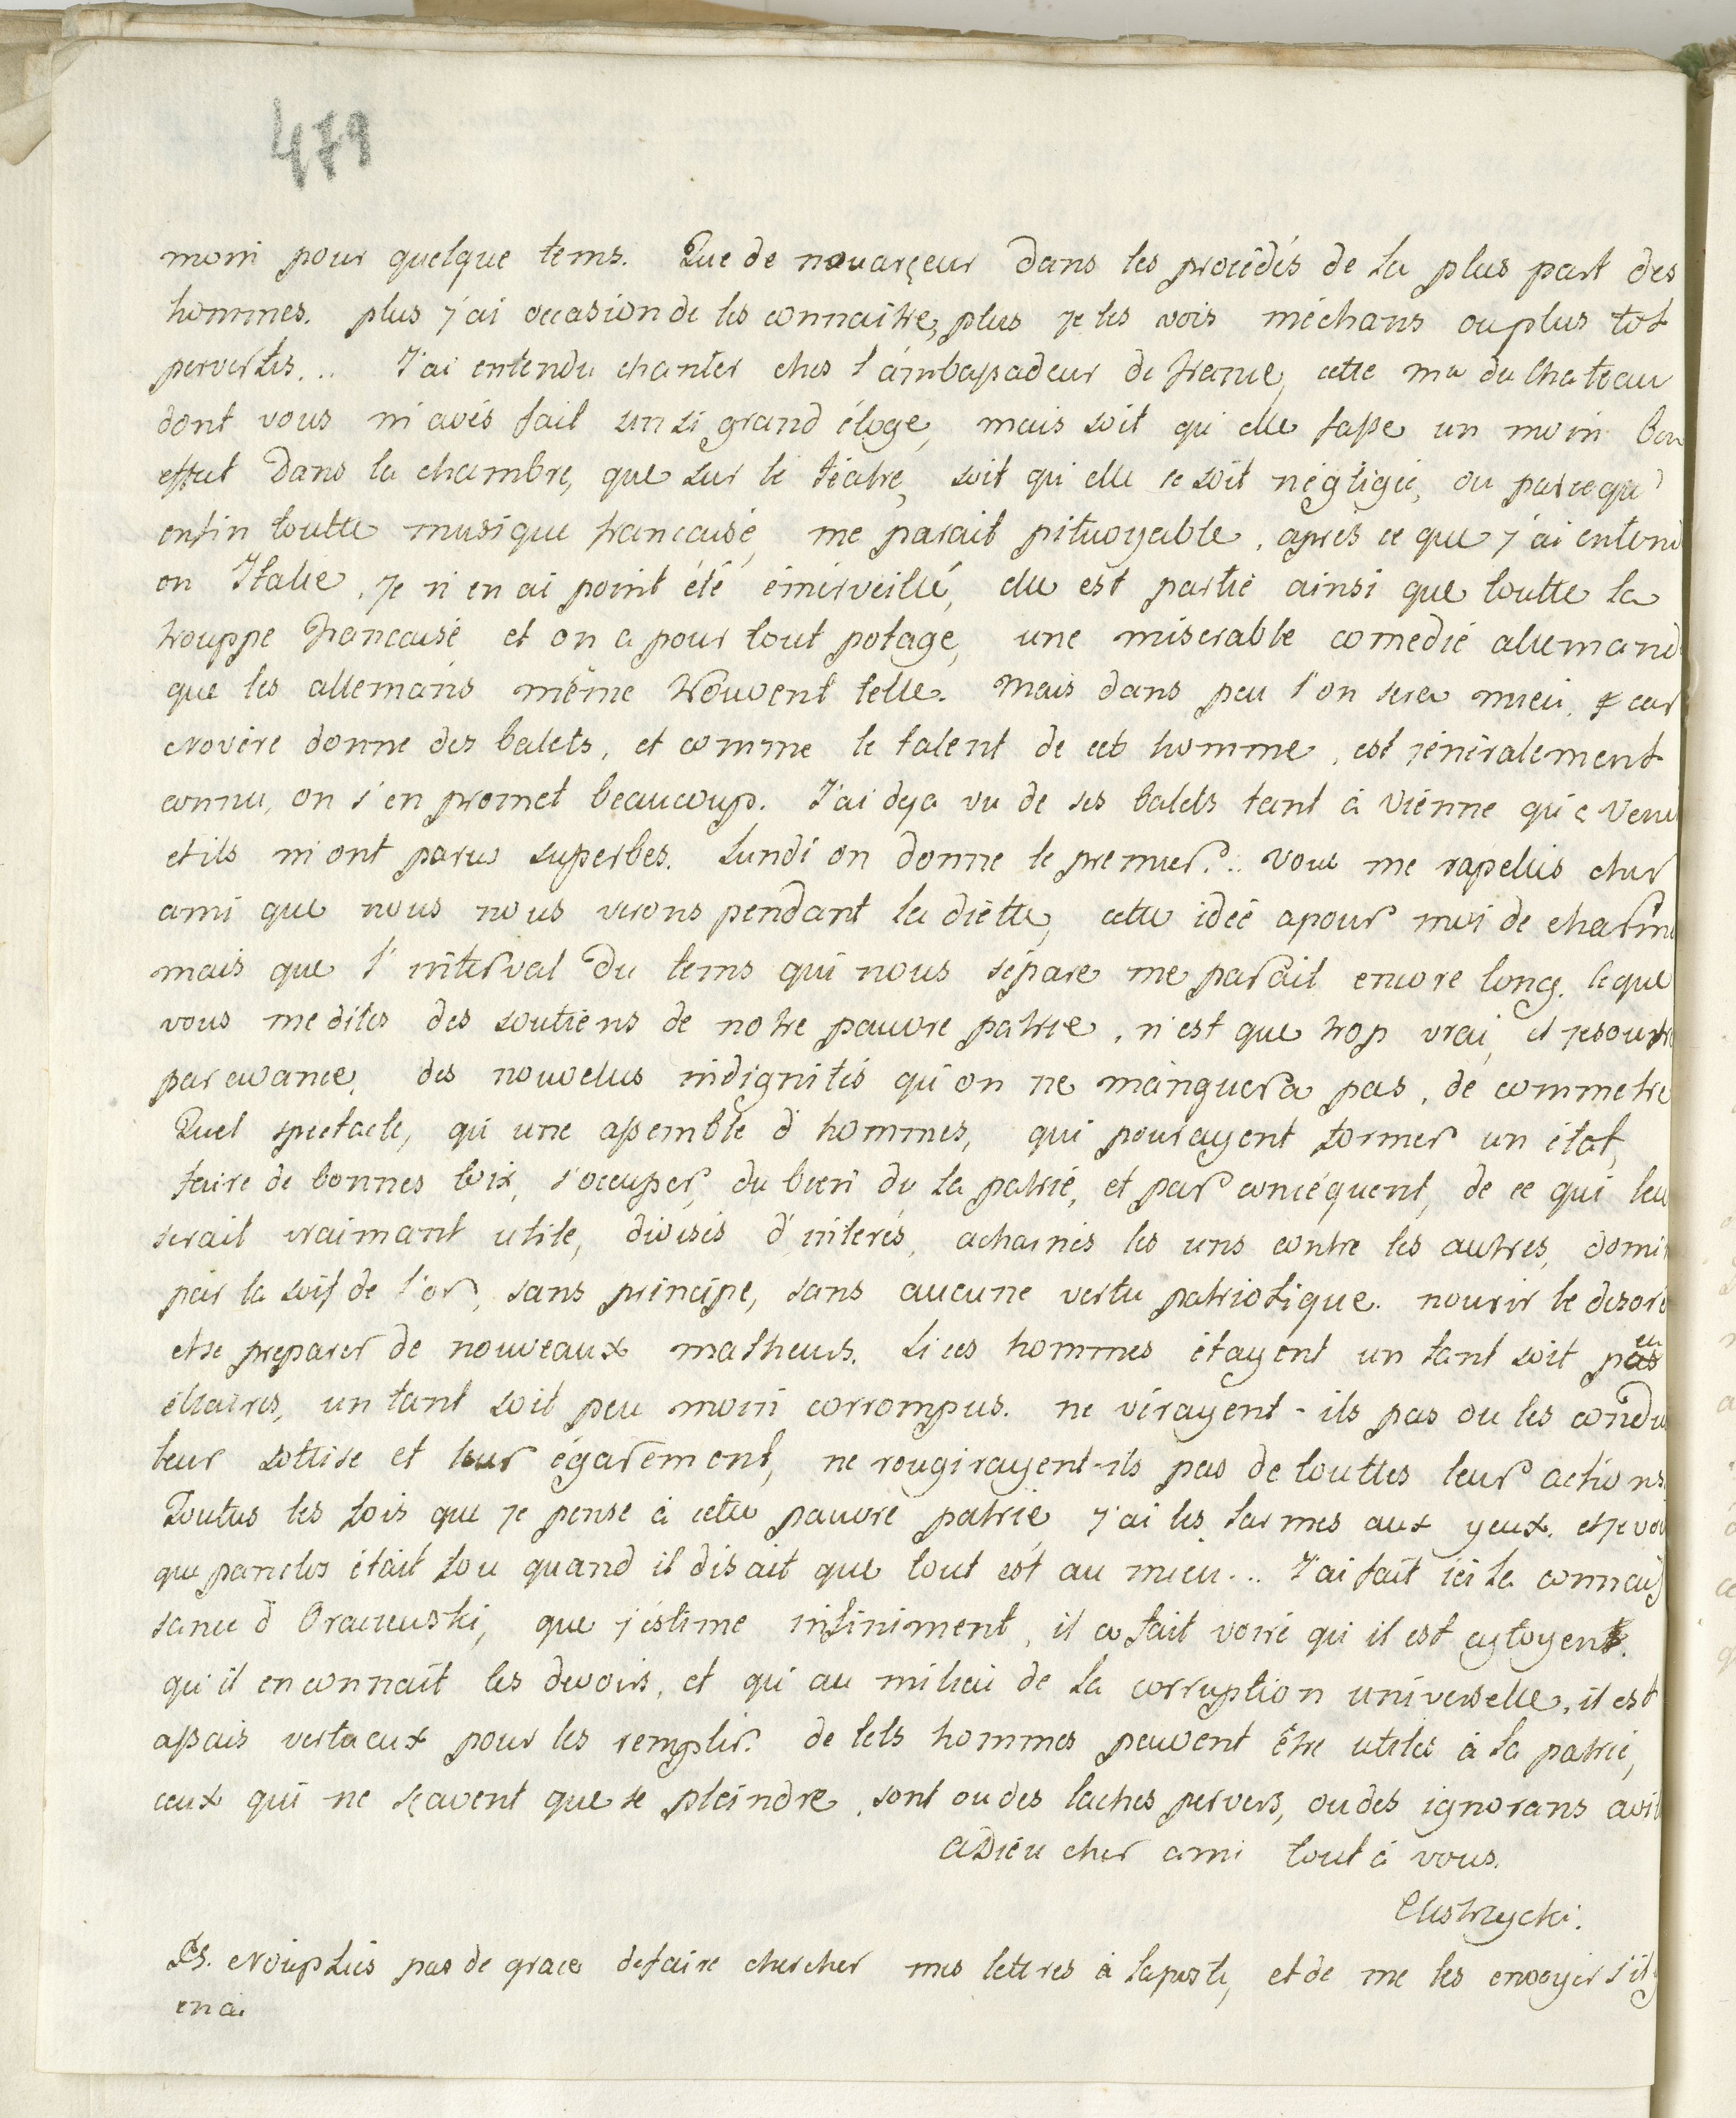 479
moin pour quelque tems. Que de nouarçeur dans les procédés de la plus part des
hommes. plus j'ai occasion de les connaitre, plus je les vois méchans ou plus tot
pervertis... J'ai entendu chanter ches l'ambassadeur de France, cette md du Chateau
dont vous m'avés fait un si grand éloge, mais soit qu'elle fasse un moin bon
effet dans la chambre, que sur le téatre, soit qu'elle se soit négligée, ou parcequ'
enfin toutte musique francaise, me parait pitwoyable, après ce que j'ai entend
en Italie, je n'en ai point été émerveillé, elle est partie ainsi que toutte la
trouppe francaise et on a pour tout potage, une miserable comedie allemand
que les allemans même trouvent telle. Mais dans peu l'on sera mieu, car
Novère donne des balets, et comme le talent de cet homme, est jéneralement
connu, on s'en promet beaucoup. J'ai deja vu de ses balets tant à Vienne qu'a Veni
et ils m'ont parus superbes. Lundi on donne le premier... vous me rapellés cher
ami que nous nous verons pendant la diette, cette idée a pour moi de charm
mais que l'interval du tems qui nous sépare me parait encore long. Ce que
vous me dites des soutiens de notre pauvre patrie, n'est que trop vrai, et je soufre
par avance, des nouvelles indignités qu'on ne manquera pas, de commetre
Quel spectacle, qu'une assemble d'hommes, qui pourayent former un état,
faire de bonnes loix, s'occuper, du bien de la patrie, et par concéquent, de ce qui leu
serait vraimant utile, divisés d'interes, achainés les uns contre les autres, domi
par la soif de l'or, sans principe, sans aucune vertu patriotique. nourir le desor
et se preparer de nouveaux malheurs. Si ces hommes étayent un tant soit peu
éclaires, un tant soit peu moin corrompus. ne verayent-ils pas ou les condui
leur sottise et leur égarement, ne rougirayent-ils pas de touttes leur actions.
Toutes les fois que je pense à cette pauvre patrie, j'ai les larmes aux yeux. et je voi
que Pancles était fou quand il disait que tout est au mieu... J'ai fait ici la connais
sance d'Oraczewski, que j'éstime infiniment, il a fait voire qu'il est cytoyent.
qu'il en connait les devoirs, et qu'au milieu de la corruption universelle, il est
assais vertueux pour les remplir. de tels hommes peuvent être utiles à la patrie,
ceux qui ne sçavent que se pleindre, sont ou des laches pervers, ou des ignorans avil
Adieu cher ami tout à vous.
Ps. N'oupliés pas de grace de faire chercher mes lettres à la poste, et de me les envoyer s'il y
en a.